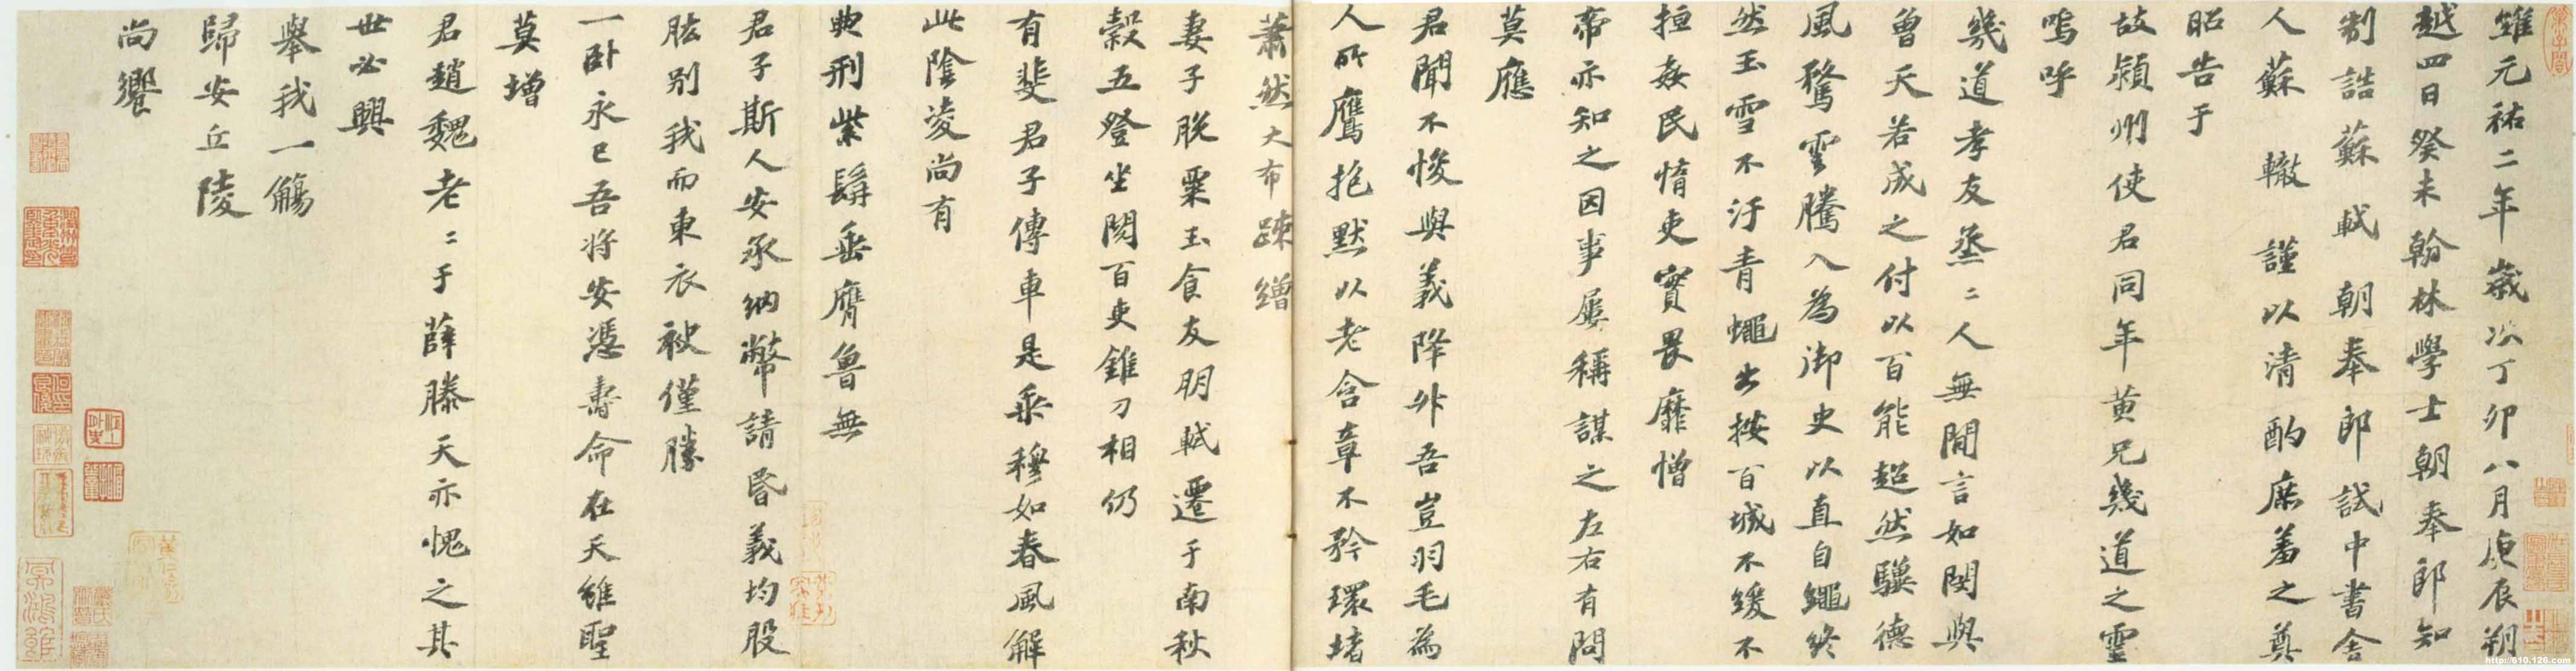 維元祐二年歲次丁卯八月庚辰朔
越四日癸未翰林學士朝奉郎知
制誥蘇軾朝奉郎試中書舍
人蘇轍謹以清酌庶羞之奠
昭告于
故潁州使君同年黄兄幾道之靈
嗚呼
幾道孝友烝二人無間言如閔與
曾天若成之付以百能超然驥德
風騖雲騰入為御史以直自繩終
然玉雪不汙青蠅出按百城不緩不
㮓姦民惰吏實畏靡憎
帝亦知之因事屢稱謀之左右有問
莫應
君聞不悛與義降升吾豈羽毛為
人所鷹抱默以老含章不矜環堵
蕭然大布疎繒
妻子脱粟玉食友朋軾遷于南秋
穀五登坐閱百吏錐刀相仍
有斐君子傳車是乘穆如春風解
此陰凌尚有
典刑紫髯垂膺魯無
君子斯人安承納幣請昏義均股
肱别我而東衣袂僅勝
一卧永已吾将安憑壽命在天雖聖
莫增
君趙魏老二于薛滕天亦愧之其
世必興
舉我一觴
歸安丘陵
尚饗
http://610.126.com